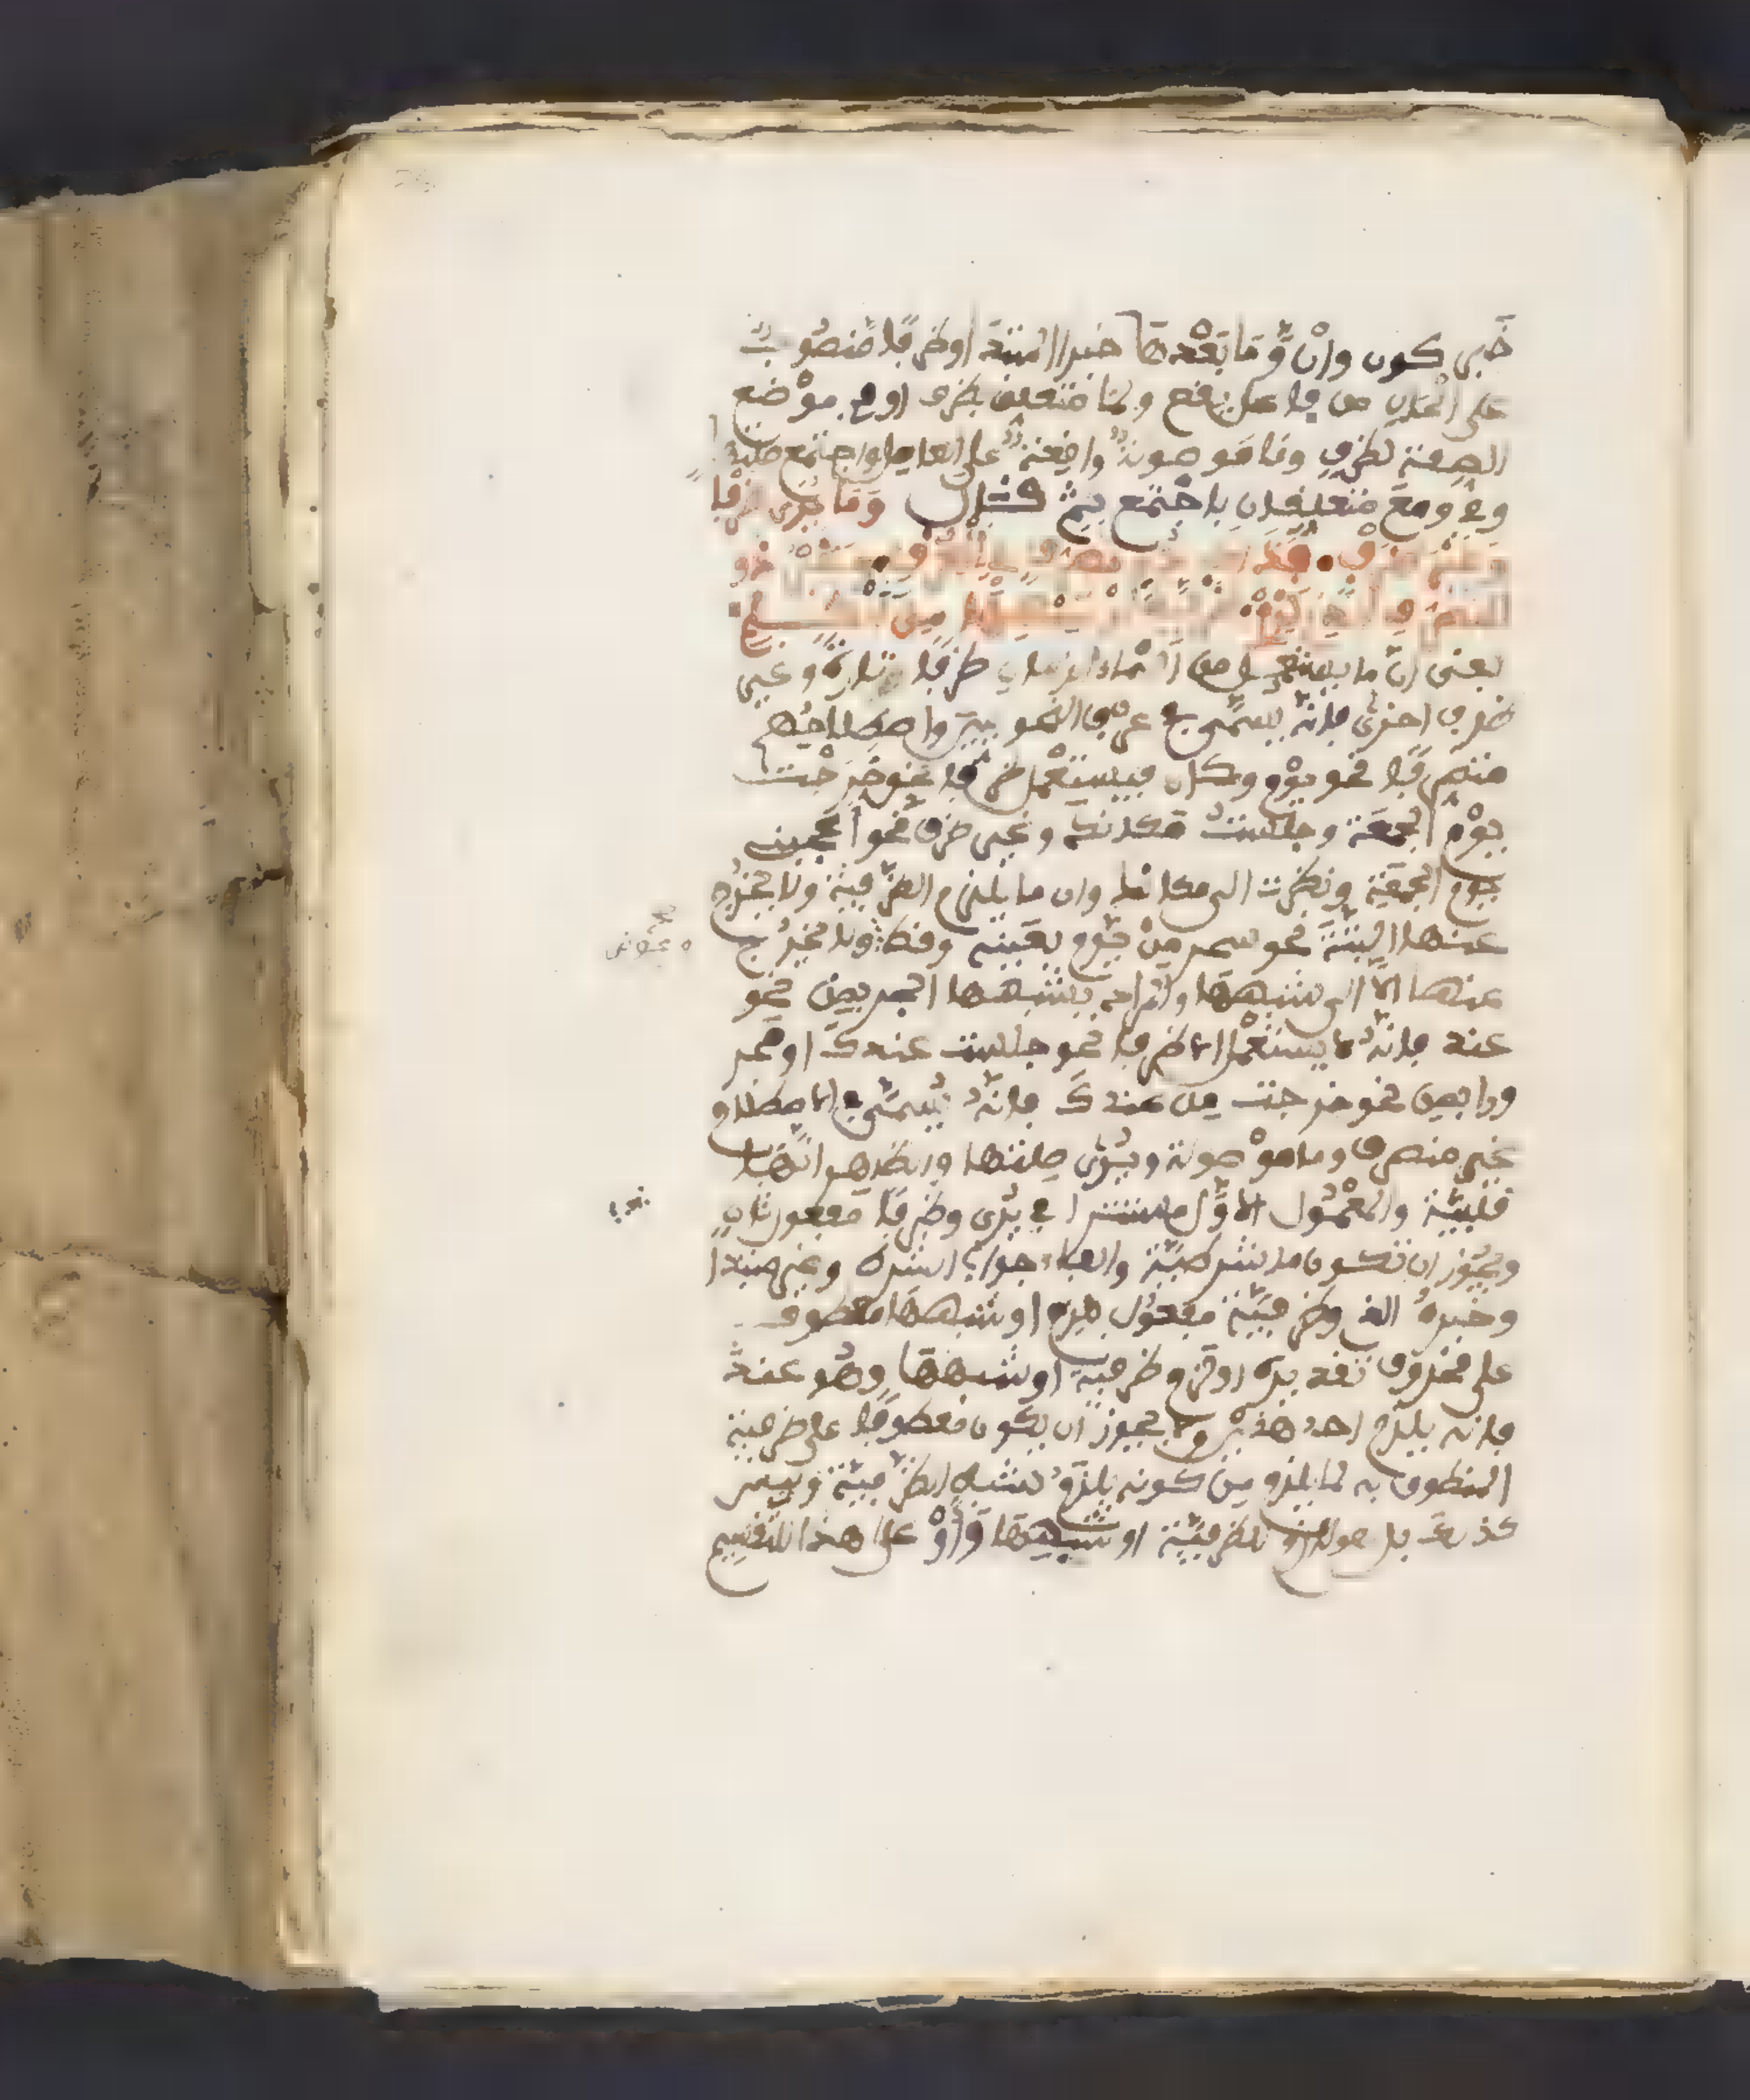 خبر كون وان وما بعدها خبر المبتدا وظرفا منصوب
على الحال من فاعل يقع ولما متعلق بظرف او في موضع
الصفة لظرف وما موصولة واقعة على العامل واجتمع صلته
وفي ومع متعلقان باجتمع ثم قال وما يرى ظرفا
وغير ظرف فذاك ذو تصرف في العرف وغير ذي
التصرف الذي لزم ظرفية او شبهها من الكلم
يعنى ان ما يستعمل من اسماء الزمان ظرفا تارة وغير
ظرف اخرى فانه يسمى في عرف النحويين واصطلاحهم
متصرفا نحو يوم ومكان فيستعمل ظرفا نحو خرجت
يوم الجمعة وجلست مكانك وغير ظرف نحو اعجبني
يوم الجمعة ونظرت الى مكانك وان ما يلزم الظرفية ولا يخرج
عنها البتة نحو سحر من يوم بعينه وقط ولا يخرج
عنها الا الى شبهها والمراد بشبهها الجر بمن نحو
عند فانه لا يستعمل الا ظرفا نحو جلست عندك او مجر
ورا بمن نحو خرجت من عندك فانه يسمى في الاصطلاح
غير متصرف وما موصولة ويرى صلتها والظاهر انها
قلبية والمعمول الاول مستتر في يرى وظرفا مفعول ثان
ويجوز ان تكون ما شرطية والفاء جواب الشرط وغير مبتدا
وخبره الذي وظرفية مفعول بلزم او شبهها معطوف
على محذوف تقديره او لزم ظرفية او شبهها وهو عند
فانه يلزم احد هذين ولا يجوز ان يكون معطوفا على ظرفية
المنطوق به لما يلزم من كونه يلزم شبه الظرفية وليس
كذلك بل هو لازم للظرفية او شبهها واو على هذا للتقسيم